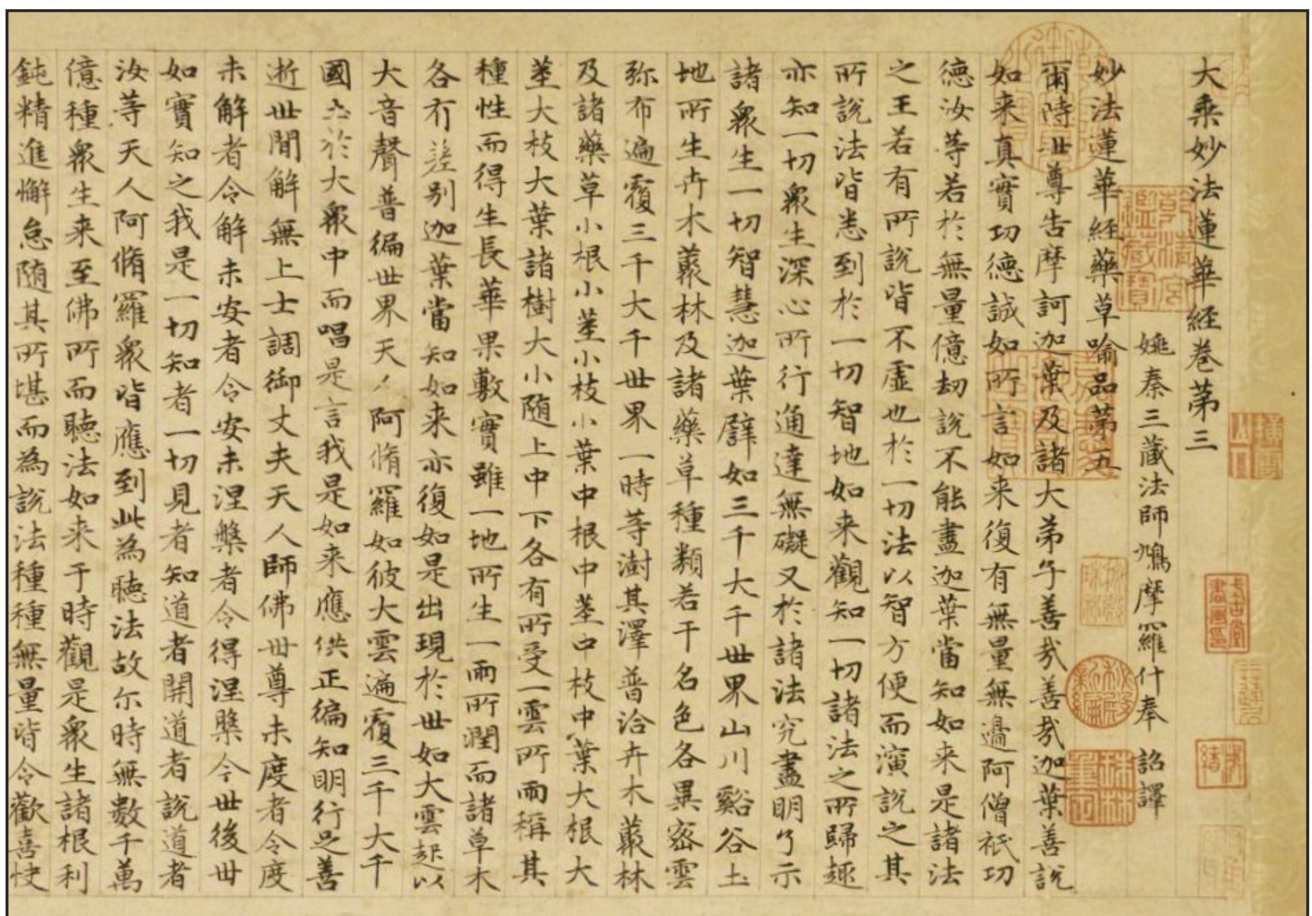 大乘妙法蓮華經卷第三
姚秦三藏法師鳩摩羅什奉 詔譯
妙法蓮華經藥草喻品第五
爾時世尊告摩訶迦葉及諸大弟子善哉善哉迦葉善說
如来真實功德誠如所言如来復有無量無邊阿僧祇功
德汝等若於無量億劫說不能盡迦葉當知如来是諸法
之王若有所說皆不虛也於一切法以智方便而演說之其
所說法皆悉到於一切智地如来觀知一切諸法之所歸趣
亦知一切衆生深心所行通達無礙又於諸法究盡明了示
諸衆生一切智慧迦葉譬如三千大千世界山川谿谷土
地所生卉木叢林及諸藥草種類若干名色各異密雲
弥布遍覆三千大千世界一時等澍其澤普洽卉木叢林
及諸藥草小根小莖小枝小葉中根中莖中枝中葉大根大
莖大枝大葉諸樹大小随上中下各有所受一雲所雨稱其
種性而得生長華果敷實雖一地所生一雨所潤而諸草木
各有差别迦葉當知如来亦復如是出現於世如大雲起以
大音聲普徧世界天人阿脩羅如彼大雲遍覆三千大千
國土於大衆中而唱是言我是如来應供正徧知明行足善
逝世間解無上士調御丈夫天人師佛世尊未度者令度
未解者令解未安者令安未涅槃者令得涅槃今世後世
如實知之我是一切知者一切見者知道者開道者說道者
汝等天人阿脩羅衆皆應到此為聽法故尔時無數千萬
億種衆生来至佛所而聽法如来于時觀是衆生諸根利
鈍精進懈怠随其所堪而為說法種種無量皆令歡喜快